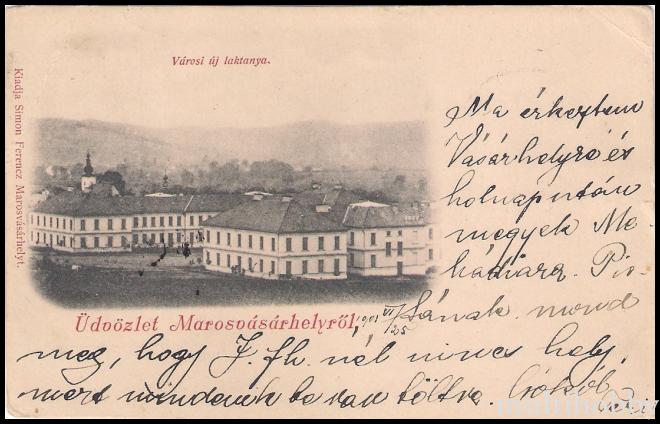 Városi új laktanya.
Kiadja Simon Ferencz Marosvásárhelyt.
Üdvözlet Marosvásárhelyről,
1901 VI/25
Ma érkeztem
Vásárhelyre és
holnapután
megyek Me-
hádiara. Pis-
tának mond
meg, hogy J. fh. nél nincs hely,
mert mindenek be van töltve. Csókol